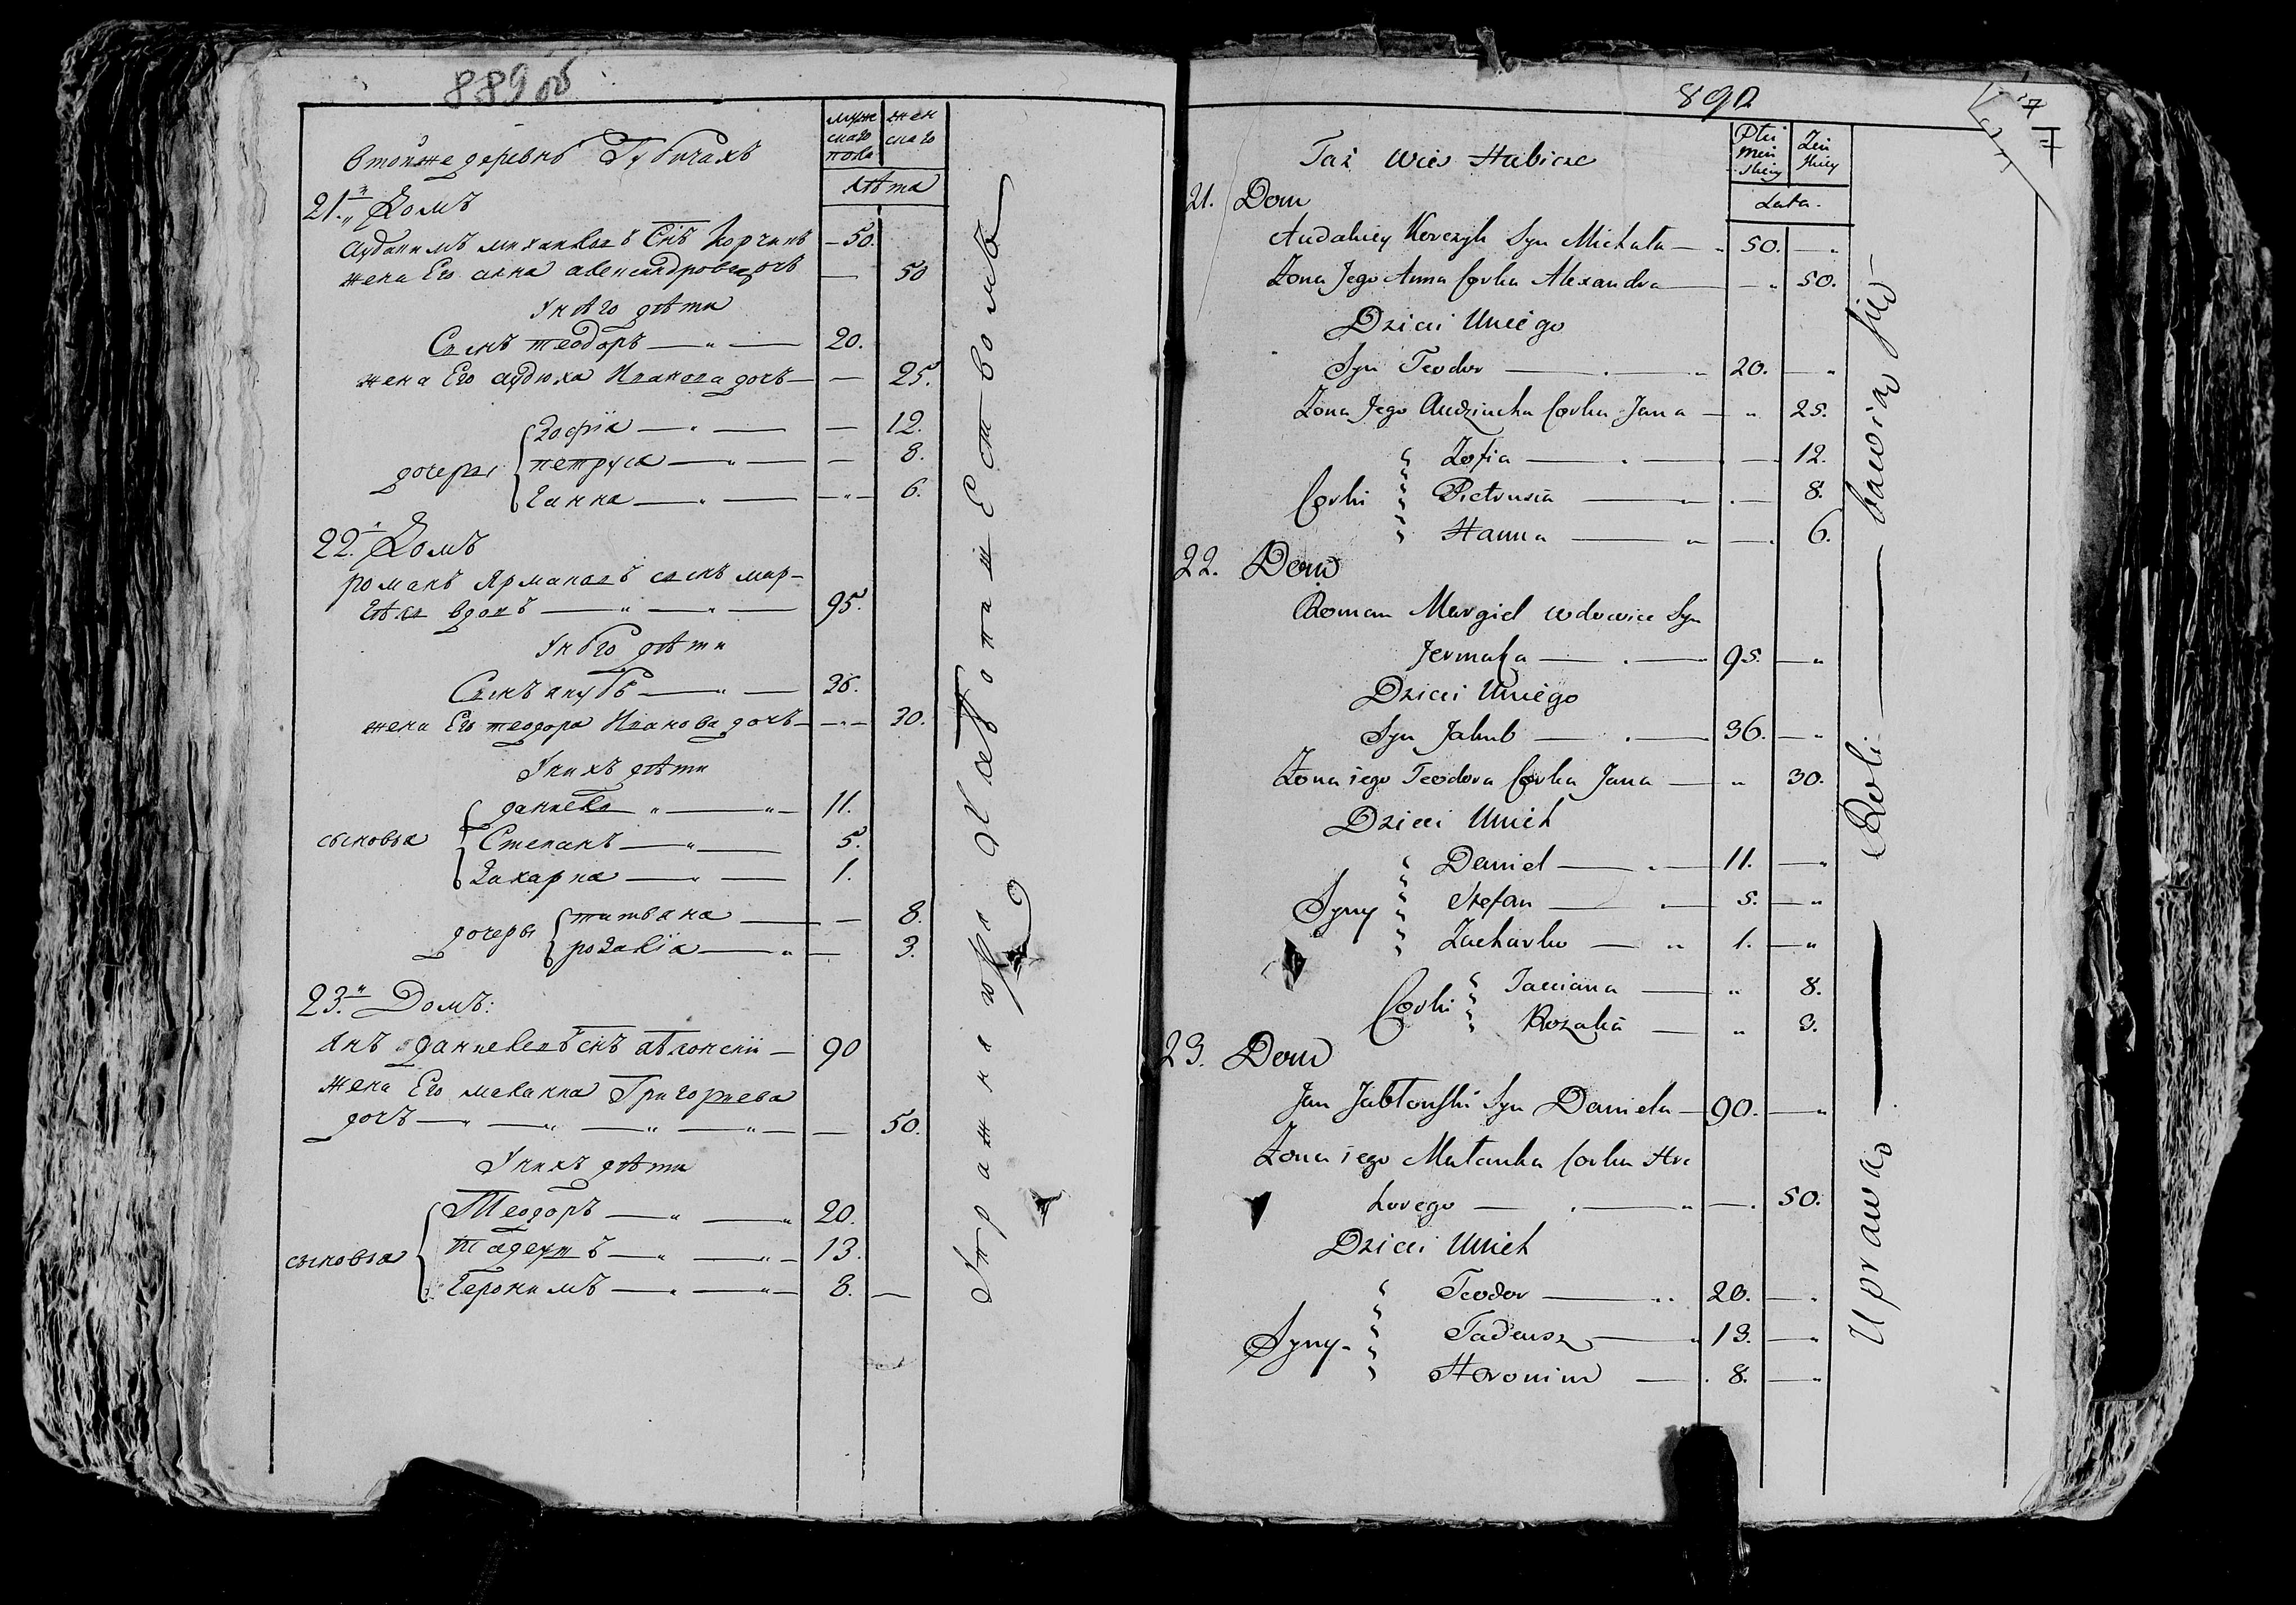 889 об
муже
скаго
пола
жен
скаго
лѣта
втойже деревнѣ Губичахъ
21й Домъ
Аудакимъ михаиловъ Снъ Корчикъ — 50.
жена Его анна александрова дочь — 50
Унѣго дѣти
Сынъ теодоръ — 20.
жена Его аудюха Иванова дочь — 25.
дочеры
Зофiа — 12.
петруса — 8.
Ганна — 6.
22й Домъ
романъ Ярмаковъ сынъ мар-
гѣль вдовъ — 95.
Унѣго дѣти
Сынъ якубъ — 36.
жена Его теодора Иванова дочь — 30.
Унихъ дѣти
сыновья
данiель — 11.
Степанъ — 5.
Захарка — 1.
дочеры
татьяна — 8.
розалiа — 3.
23й Домъ:
Янъ данiеловъ снъ яблонскiй — 90
жена Его меланка Григориева
дочь — 50.
Унихъ дѣти
сыновья
Теодоръ — 20.
Тадеушъ — 13.
Геронимъ — 8. —
Упражняются хлѣбопашествомъ
890
7
Płci
męz
skiey
Żeń
skiey
Lata.
Taż wieś Hubicze
21. Dom
Audakiey Korczyk Syn Michała — 50. —
Żona Jego Anna Corka Alexandra — 50.
Dzieci Uniego
Syn Teodor — 20. —
Żona Jego Audziucha Corka Jana — 25.
Corki
Zofia — 12.
Pietrusia — 8.
Hanna — 6.
22. Dom
Roman Margiel wdowiec Syn
Jermaka — 95. —
Dzieci Uniego
Syn Jakub — 36. —
Żona iego Teodora Corka Jana — 30.
Dzieci Unich
Syny
Daniel — 11. —
Stefan — 5. —
Zacharko — 1. —
Corki
Tacciana — 8.
Rozalia — 3.
23. Dom
Jan Jabłonski Syn Daniela — 90. —
Żona iego Małanka Corka Hre
horego — 50.
Dzieci Unich
Syny
Teodor — 20. —
Tadeusz — 13. —
Heronim — 8. —
Uprawą — Roli — bawią się